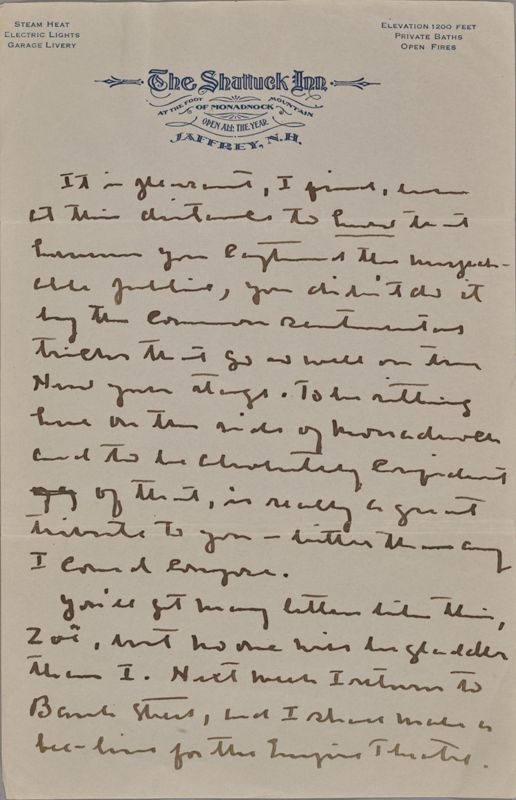 STEAM HEAT
ELECTRIC LIGHTS
GARAGE LIVERY
ELEVATION 1200 FEET
PRIVATE BATHS
OPEN FIRES
The Shattuck Inn
AT THE FOOT OF MONADNOCK MOUNTAIN
OPEN ALL THE YEAR
JAFFREY, N.H.
It is pleasant, I find, even
at this distance to know that
however you captured the unspeak-
able public, you didn't do it
by the common sentimental
tricks that go so well on the
New York stage. To be sitting
here on the side of Monadnock
and to be absolutely confident
of that, is really a great
tribute to you – better than any
I could compose.
You'll get many letters like this,
Zoë, but no one will be gladder
than I. Next week I return to
Bank Street, and I shall make a
bee-line for the Empire Theatre.